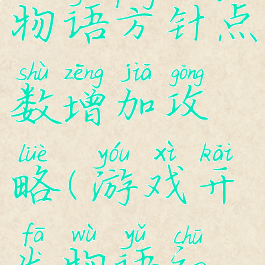 物语方针点
shù zēng jiā gōng
数增加攻
lüè yóu xì kāi
略(游戏开
fā wù yǔ chū
发物语初